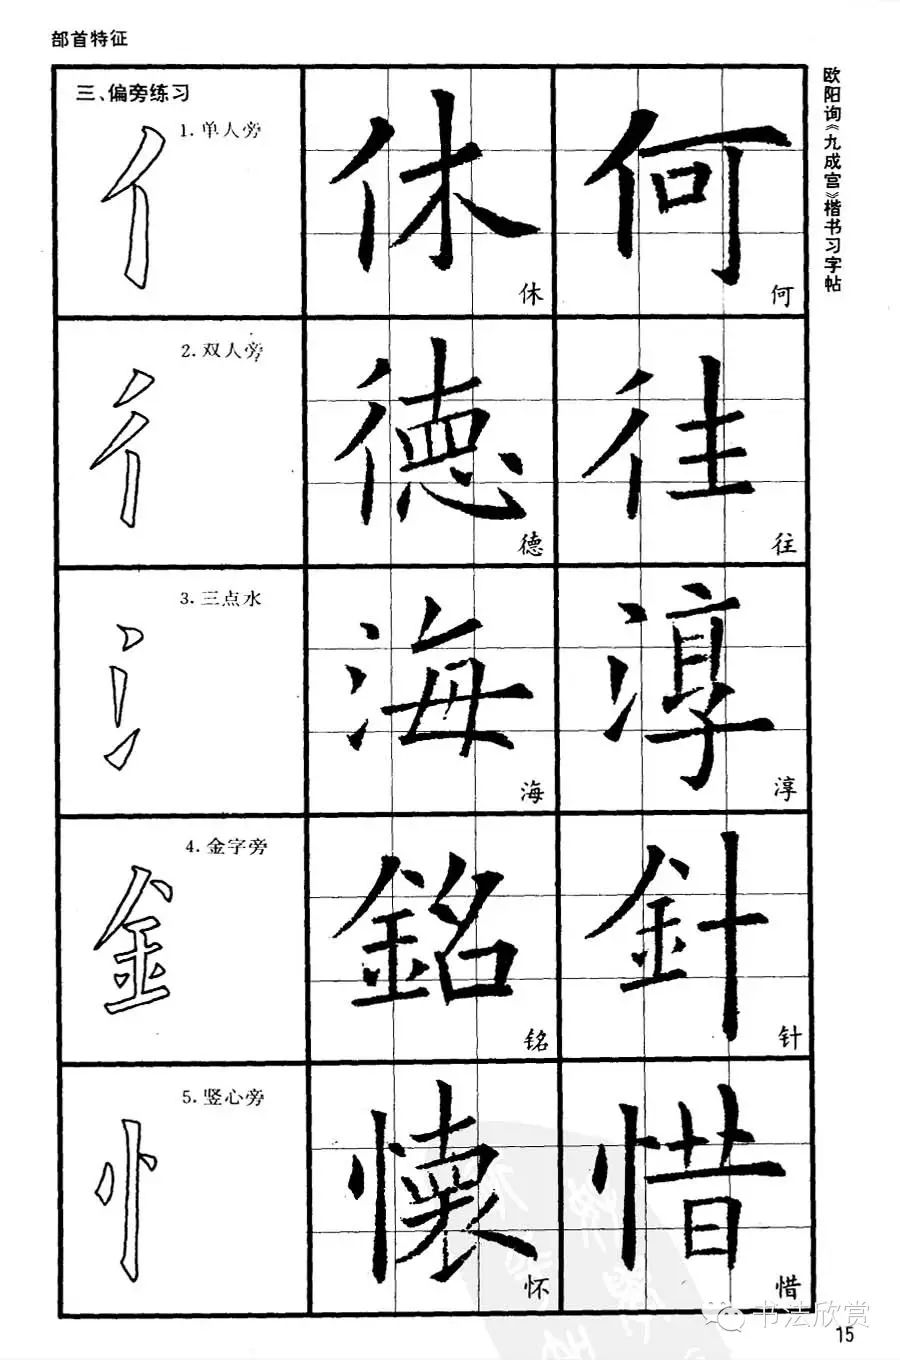 部首特征
三、偏旁练习
1.单人旁
亻
休
休
何
何
2.双人旁
彳
德
德
往
往
3.三点水
氵
海
海
淳
淳
4.金字旁
釒
銘
铭
針
针
5.竖心旁
忄
懷
怀
惜
惜
欧阳询《九成宫》楷书习字帖
书法欣赏
15